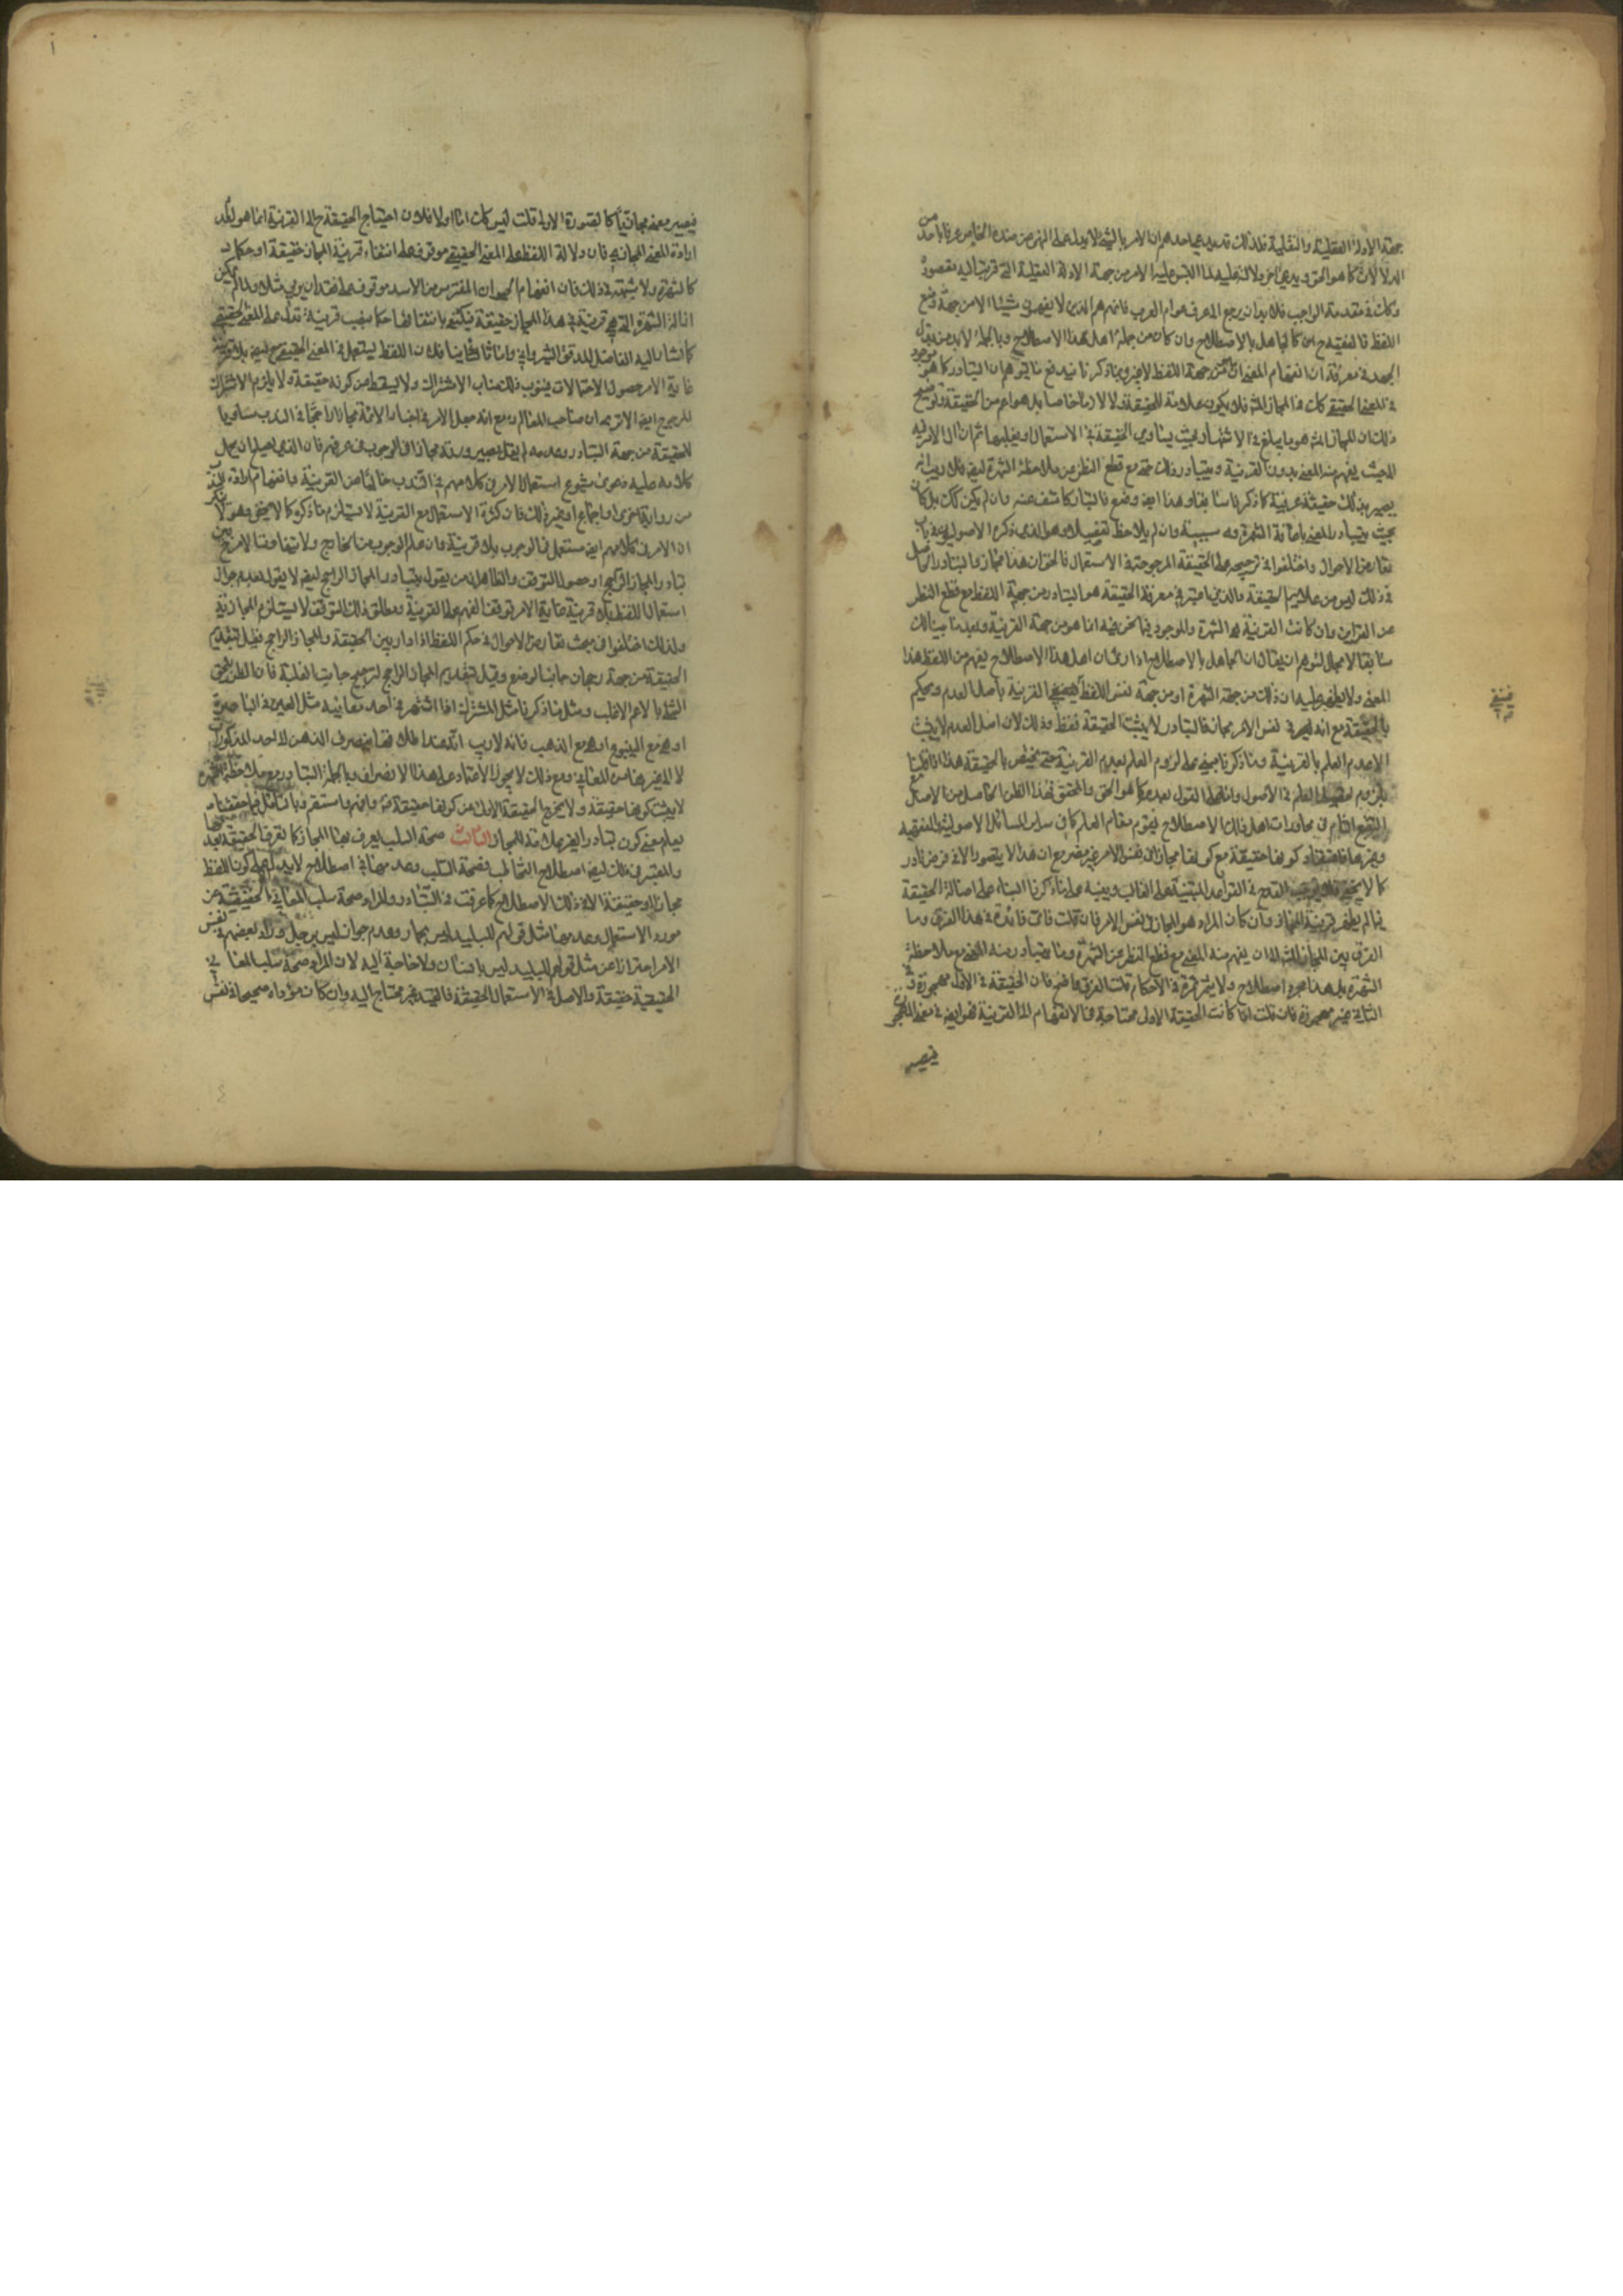 جهة الادلة العقلية والنقلية فلذلك قد يدعى احدهم ان الامر بالشئ لا يدل على النهي عن ضده الخاص عرفا باحد من
الدلالات كما هو الحق ويدعى اخر دلالته عليه لما التبس عليه الامر من جهة الادلة العقلية التي قربتها اليه مقصوده
وكك في مقدمة الواجب فلا بد ان يرجع الى عرف عوام العرب فانهم هم الذين لا يفهمون شيئا الا من جهة وضع
اللفظ فالفقيه ح كالجاهل بالاصطلاح وان كان من جملة اهل هذا الاصطلاح وبالجملة لا بد من بذل
الجهد في معرفة ان انفهام المعنى من جهة اللفظ لا غير وبما ذكرنا يندفع ما يتوهم ان التبادر كما هو موجود
في المعنى الحقيقي كك في المجاز المشهور فلا يكون علامة للحقيقة ولا لازما خاصا بل هو اعم من الحقيقة وتوضيح
ذلك ان المجاز المشهور هو ما يبلغ في الاشتهار بحيث يساوي الحقيقة في الاستعمال او يغلبها ثم ان الامر فيه
الى حيث يفهم منه المعنى بدون القرينة ويتبادر ذلك حتى مع قطع النظر عن ملاحظة الشهرة ايضا فلا ريب انه
يصير بذلك حقيقة عرفية كما ذكرنا سابقا وهذا ايضا وضع فالتبادر كاشف عنه وان لم يكن كك بل كان
بحيث يتبادر المعنى باعانة الشهرة وسببيته وان لم يلاحظ تفصيلا وهو الذي ذكره الاصوليون في باب
تعارض الاحوال واختلفوا في ترجيحه على الحقيقة المرجوحة في الاستعمال فالحق ان هذا مجاز والتبادر الحاصل
في ذلك ليس من علائم الحقيقة والذي اعتبر في معرفة الحقيقة هو التبادر من جهة اللفظ مع قطع النظر
عن القراين وان كانت القرينة هي الشهرة والموجود فيما نحن فيه انما هو من جهة القرينة وبعد ما بينا لك
سابقا لا مجال لتوهم ان يقال ان الجاهل بالاصطلاح اذا راى ان اهل هذا الاصطلاح يفهم من اللفظ هذا
المعنى ولا يظهر عليه ان ذلك من جهة الشهرة او من جهة نفس اللفظ فينفي القرينة باصل العدم ويحكم
بالحقيقة مع انه في نفس الامر مجاز فالتبادر لا يثبت الحقيقة فقط وذلك لان اصل العدم لا يثبت
الا عدم العلم بالقرينة وما ذكرنا مبني على لزوم العلم بعدم القرينة حتى يختص بالحقيقة هذا اذا قلنا
بلزوم تحصيل العلم في الاصول واما على القول بعدمه كما هو الحق والمحقق فهذا الظن الحاصل من الاصل مع
التتبع التام في محاورات اهل ذلك الاصطلاح يقوم مقام العلم كما في سائر المسائل الاصولية والفقهية
وغيرها فاعتقاد كونها حقيقة مع كونها مجازا في نفس الامر غير مضر مع ان هذا لا يتصور الا في فرض نادر
كما لا يخفى فلا يوجب القدح في القواعد المبتنية على الغالب وينبه على ما ذكرنا البناء على اصالة الحقيقة
فيما لم يظهر قرينة المجاز وان كان المراد هو المجاز في نفس الامر فان قلت فاى فائدة في هذا الفرق وما
الفرق بين المجاز المشهور اذا ان يفهم منه المعنى مع قطع النظر عن الشهرة وما يتبادر منه المعنى مع ملاحظة
الشهرة بل هذا مجرد اصطلاح ولا يثمر ثمرة في الاحكام قلت الفرق واضح فان الحقيقة في الاول مهجورة وفي
الثاني غير مهجورة فان قلت اذا كانت الحقيقة الاولى محتاجة في الانفهام الى القرينة فهو ايضا في معنى المهجور
فيصير
فيصير معنى مجازيا كالصورة الاولى قلت ليس كك اما اولا فلان احتياج الحقيقة ح الى القرينة انما هو لعدم
ارادة المعنى المجازي فان دلالة اللفظ على المعنى الحقيقي موقوف على انتفاء قرينة المجاز حقيقة او حكما
كالشهرة ولا يشتبه في ذلك فان انفهام الحيوان المفترس من الاسد موقوف على فقدان يرمي مثلا ولما لم يمكن
ازالة الشهرة التي هي قرينة في هذا المجاز حقيقة فيكتفى بانتفائها حكما بنصب قرينة تدل على المعنى الحقيقي
كما اشار اليه الفاضل المدقق الشيرواني واما ثانيا فلان اللفظ يستعمل في المعنى الحقيقي ح ايضا بلا قرينة
غاية الامر حصول الاحتمالات ينوب ذلك مناب الاشتراك ولا يسقط عن كونه حقيقة ولا يلزم الاشتراك
المرجوح ايضا الا ترى ان صاحب المعالم ره مع انه جعل الامر في اخبار الائمة مجازا راجحا في الندب مساويا
للحقيقة من جهة التبادر وعدمه لم يقل بصيرورته مجازا في الوجوب في عرفهم فان الذي يصلح ان يحمل
كلامه عليه دعوى شيوع استعمال الامر في كلامهم في الندب خاليا عن القرينة وانفهام
من رواية اخرى او اجماع او غير ذلك فان كثرة الاستعمال مع القرينة لا يستلزم ما ذكره كما لا يخفى وهو لا ينكر
ان الامر في كلامهم ايضا مستعمل في الوجوب بلا قرينة وان علم الوجوب من الخارج ولا يتفاوت الامر بين
تبادر المجاز الراجح او حصول التوقف والظاهر ان من يقول بتبادر المجاز الراجح ايضا لا يقول بعدم جواز
استعمال اللفظ بلا قرينة غاية الامر توقف الفهم على القرينة ومطلق ذلك التوقف لا يستلزم المجازية
ولذلك اختلفوا في مبحث تعارض الاحوال في حكم اللفظ اذا دار بين الحقيقة والمجاز الراجح فقيل بتقديم
الحقيقة من جهة رجحان جانب الوضع وقيل بتقديم المجاز الراجح لترجيح جانب الغلبة فان الظن يلحق
الشئ بالاعم الاغلب ومثل ما ذكرنا مثل المشترك اذا اشتهر في احد معانيه مثل العين في الباصرة
او هي مع الينبوع او هي مع الذهب فانه لا ريب انه عند اطلاقها ينصرف الذهن لاحد المذكورات
لا الى غيرها من المعاني ومع ذلك لا يجوز الاعتماد على هذا الانصراف وبالجملة التبادر مع ملاحظة الشهرة
لا يثبت كونها حقيقة ولا يخرج الحقيقة الاولى عن كونها حقيقة وافهم واستقم وبالتامل فيما حققناه
يعلم معنى كون تبادر الغير علامة للمجاز الثالث صحة السلب يعرف بها المجاز كما يعرف الحقيقة بعدمها
والمعتبر في ذلك ايضا اصطلاح التخاطب فصحة السلب وعدمها في اصطلاح لا يدل الا على كون اللفظ
مجازا او حقيقة الا في ذلك الاصطلاح كما عرفت في التبادر والمراد صحة سلب المعاني الحقيقية عن
مورد الاستعمال وعدمها مثل قولهم للبليد ليس بحمار وعدم جواز ليس برجل وزاد بعضهم في نفس
الامر احترازا عن مثل قولهم للبليد ليس بانسان ولا حاجة اليه لان المراد صحة سلب المعاني
الحقيقية حقيقة والاصل في الاستعمال الحقيقة فالقيد غير محتاج اليه وان كان مؤداه صحيحا في نفس